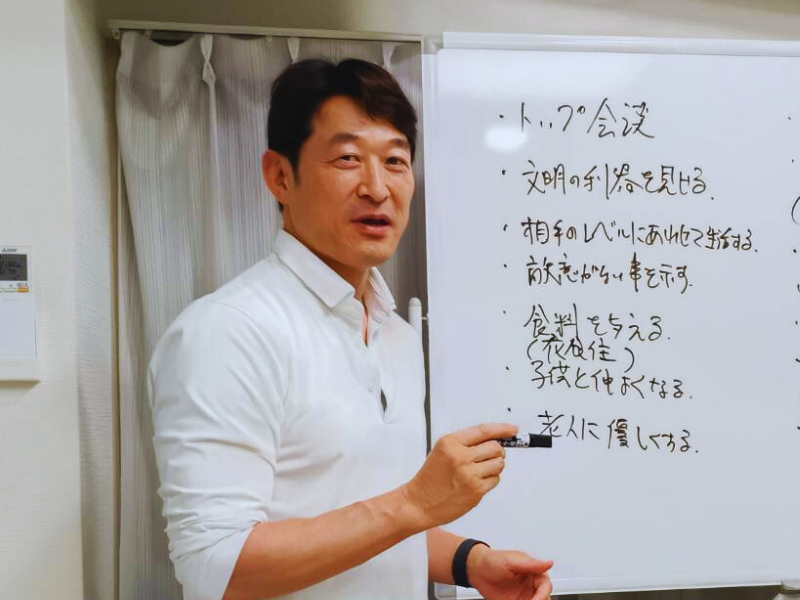 ・トップ会談
・文明の利器を見せる.
・相手のレベルにあわせて生活する.
・敵意がない事を示す.
・食料を与える.
(衣住)
・子供と仲よくなる.
・老人に優しくする.